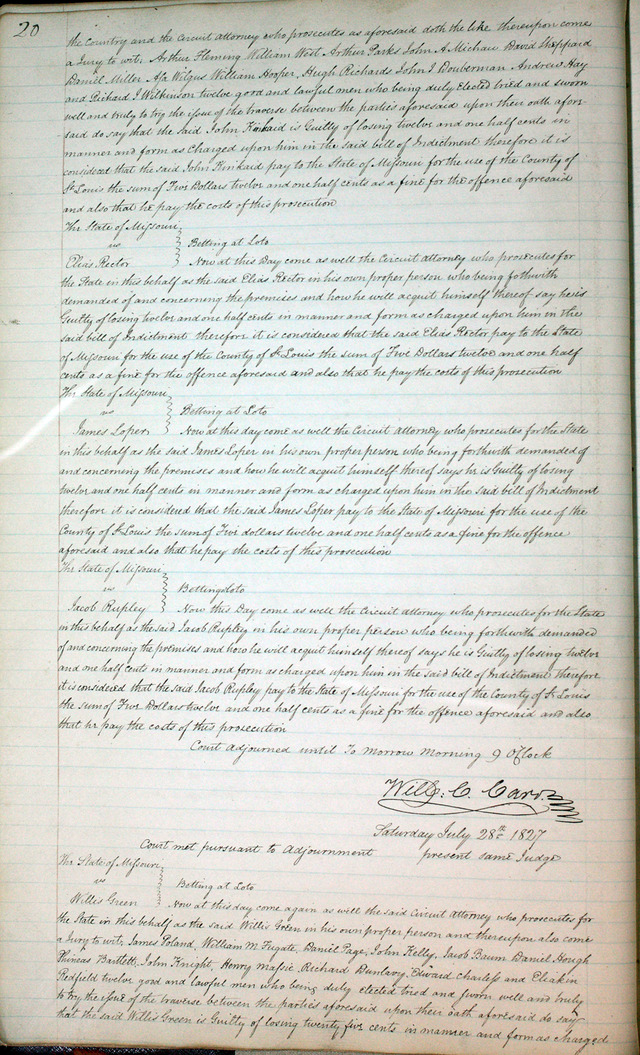 20
the Country and the Circuit Attorney who prosecutes as aforesaid doth the like thereupon come
a Jury to wit, Arthur Fleming William West Arthur Parks John A Michau David Sheppard
Daniel Miller Asa Wilgus William Hooper, Hugh Richards John I Douberman Andrew Hay
and Richard I Wilkinson twelve good and lawful men who being duly Elected tried and sworn
well and truly to try the issue of the traverse between the parties aforesaid upon their oath afore
said do say that the said John Kinkaid is Guilty of losing twelve and one half cents in
manner and form as Charged upon him in the said bill of Indictment therefore it is
considered that the said John Kinkaid pay to the State of Missouri for the use of the County of
St Louis the sum of Five Dollars twelve and one half cents as a fine for the offence aforesaid
and also that he pay the costs of this prosecution
The State of Missouri
vs
Betting at Loto
Elias Rector
Now at this Day come as well the Circuit attorney who prosecutes for
the State in this behalf as the said Elias Rector in his own proper person who being forthwith
demanded of and concerning the premises and how he will acquit himself thereof say he is
Guilty of losing twelve and one half cents in manner and form as charged upon him in the
said bill of Indictment therefore it is considered that the said Elias Rector pay to the State
of Missouri for the use of the County of St Louis the sum of Five Dollars twelve and one half
cents as a fine for the offence aforesaid and also that he pay the costs of this prosecution
The State of Missouri
vs
Betting at Loto
James Loper
Now at this day come as well the Circuit attorney who prosecutes for the State
in this behalf as the said James Loper in his own proper person who being forthwith demanded of
and concerning the premises and how he will acquit himself thereof says he is Guilty of losing
twelve and one half cents in manner and form as charged upon him in the said bill of Indictment
therefore it is considered that the said James Loper pay to the State of Missouri for the use of the
County of St Louis the sum of Five dollars twelve and one half cents as a fine for the offence
aforesaid and also that he pay the costs of this prosecution
The State of Missouri
vs
Betting at loto
Jacob Rupley
Now this Day come as well the Circuit attorney who prosecutes for the State
in this behalf as the said Jacob Rupley in his own proper person who being forthwith demanded
of and concerning the premises and how he will acquit himself thereof says he is Guilty of losing twelve
and one half cents in manner and form as charged upon him in the said bill of Indictment therefore
it is considered that the said Jacob Rupley pay to the State of Missouri for the use of the County of St Louis
the sum of Five Dollars twelve and one half cents as a fine for the offence aforesaid and also
that he pay the costs of this prosecution
Court Adjourned until To Morrow Morning 9 O'Clock
Will: C. Carr.
Saturday July 28th 1827
Court met pursuant to Adjournment present same Judge
The State of Missouri
vs
Betting at Loto
Willis Green
Now at this day come again as well the said Circuit Attorney who prosecutes for
the State in this behalf as the said Willis Green in his own proper person and thereupon also come
a Jury to wit, James Poland, William M. Fugate, Daniel Page, John Kelly, Jacob Baum Daniel Hough
Phineas Bartlett, John Knight, Henry Massie Richard Dunlavy, Edward Charless and Eliakim
Redfield twelve good and lawful men who being duly elected tried and sworn well and truly
to try the issue of the traverse between the parties aforesaid upon their oath aforesaid do say
that the said Willis Green is Guilty of losing twenty five cents in manner and form as charged